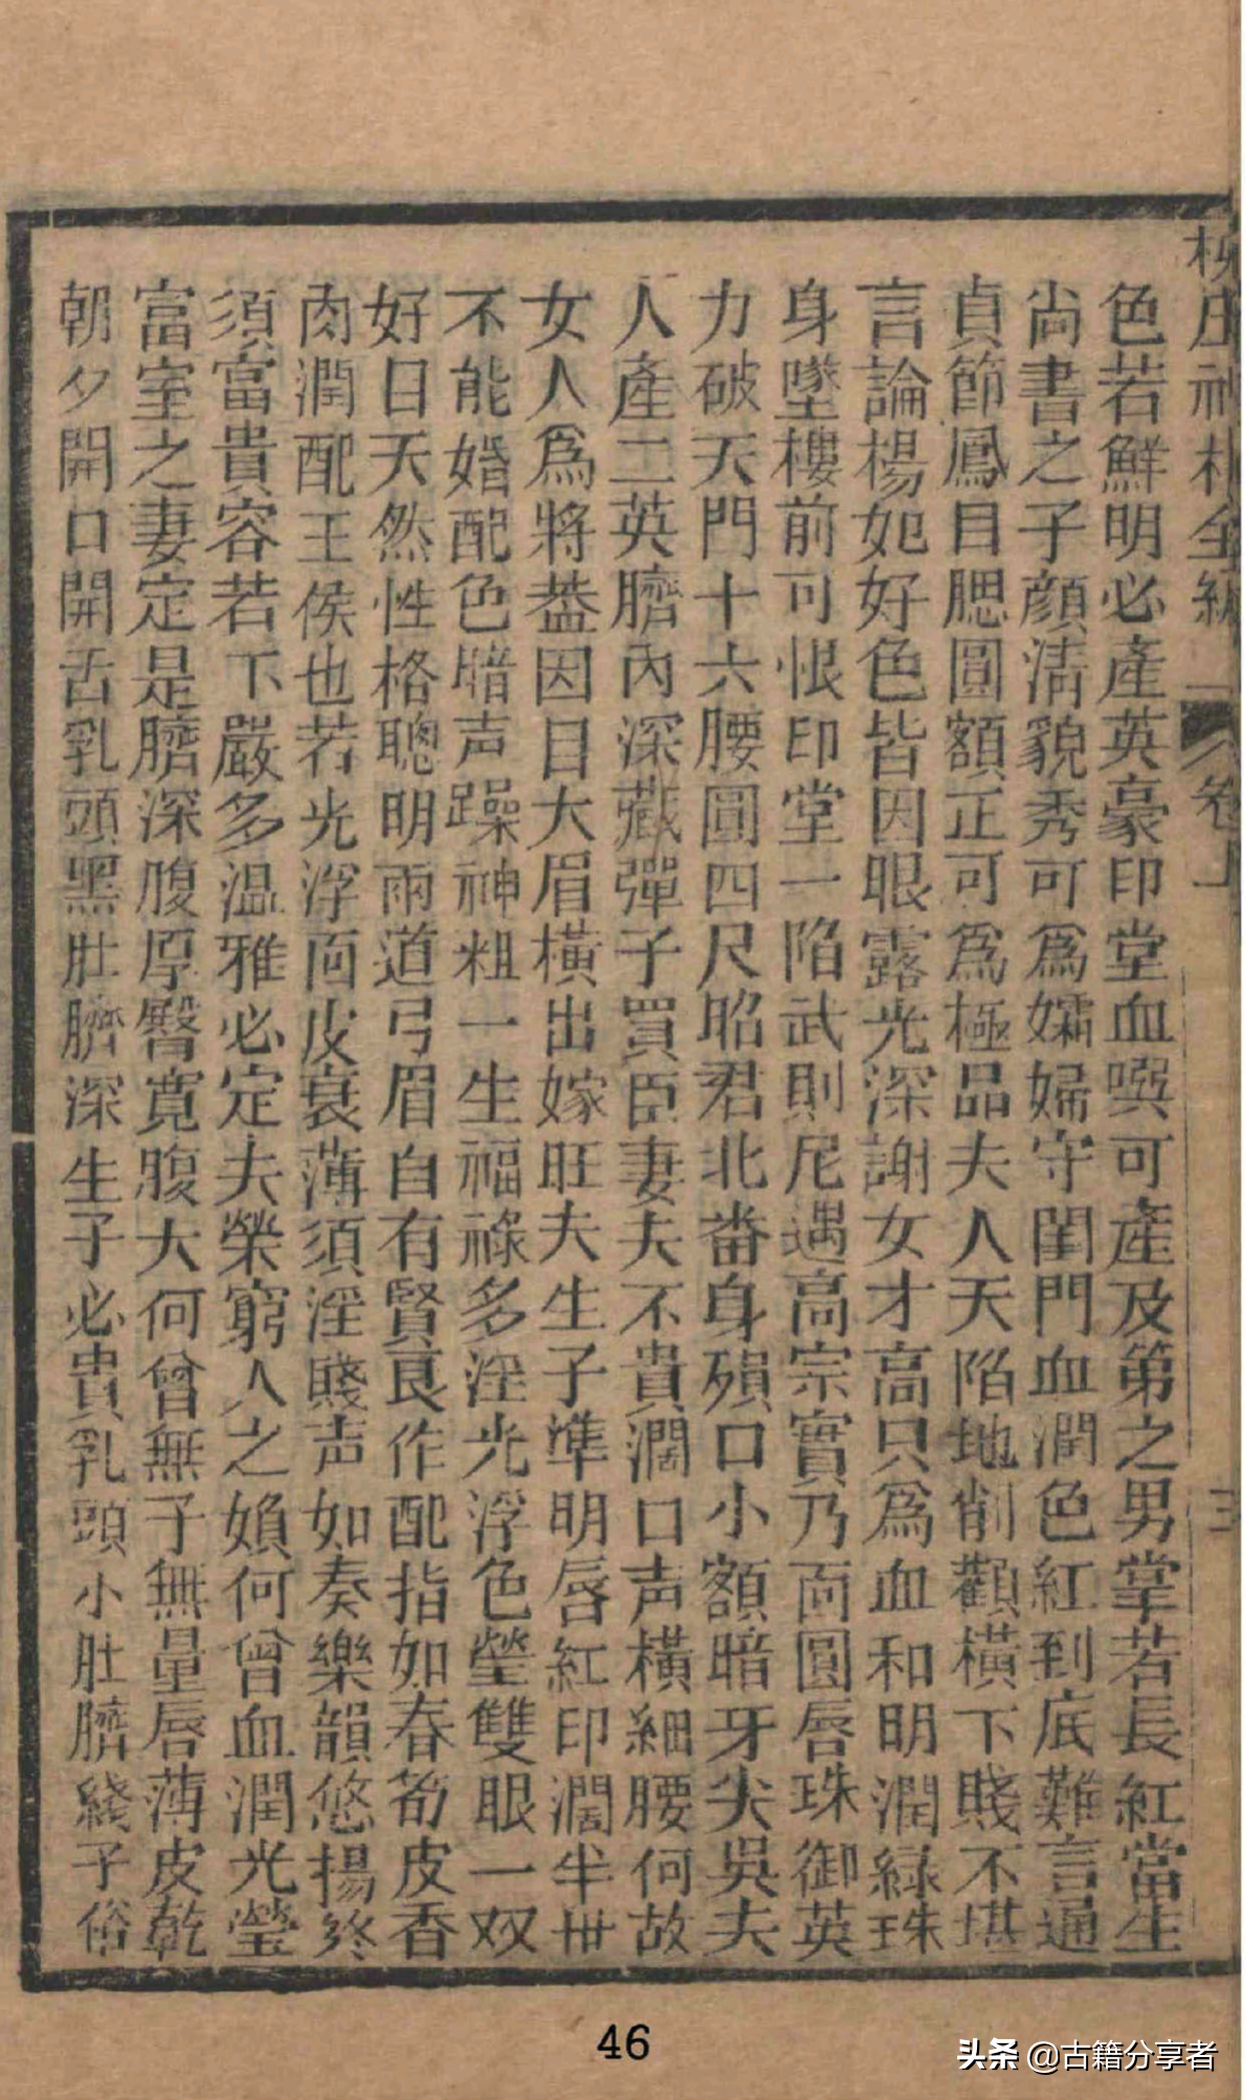 柳庄神相全編 卷上 三
色若鮮明必產英豪印堂血噀可產及第之男掌若長紅當生
尚書之子顏清貌秀可爲孀婦守閨門血潤色紅到底難言通
貞節鳳目腮圓額正可爲極品夫人天陷地削顴橫下賤不堪
言論楊妃好色皆因眼露光深謝女才高只爲血和明潤綠珠
身墜樓前可恨印堂一陷武則尼遇高宗實乃面圓唇珠御英
力破天門十六腰圓四尺昭君北畨身殞口小額暗牙尖吳夫
人產二英臍內深藏彈子買臣妻夫不貴濶口声橫細腰何故
女人爲將葢因目大眉橫出嫁旺夫生子準明唇紅印濶半世
不能婚配色暗声躁神粗一生福祿多淫光浮色瑩雙眼一双
好日天然性格聰明兩道弓眉自有賢良作配指如春荀皮香
肉潤配王侯也若光浮面皮衰薄須淫賤声如奏樂韻悠揚終
須富貴容若下嚴多温雅必定夫榮窮人之媍何曾血潤光瑩
富室之妻定是臍深腹厚臀寬腹大何曾無子無量唇薄皮乾
朝夕開口開舌乳頭黑肚臍深生子必貴乳頭小肚臍綫子俗
46
头条 @古籍分享者